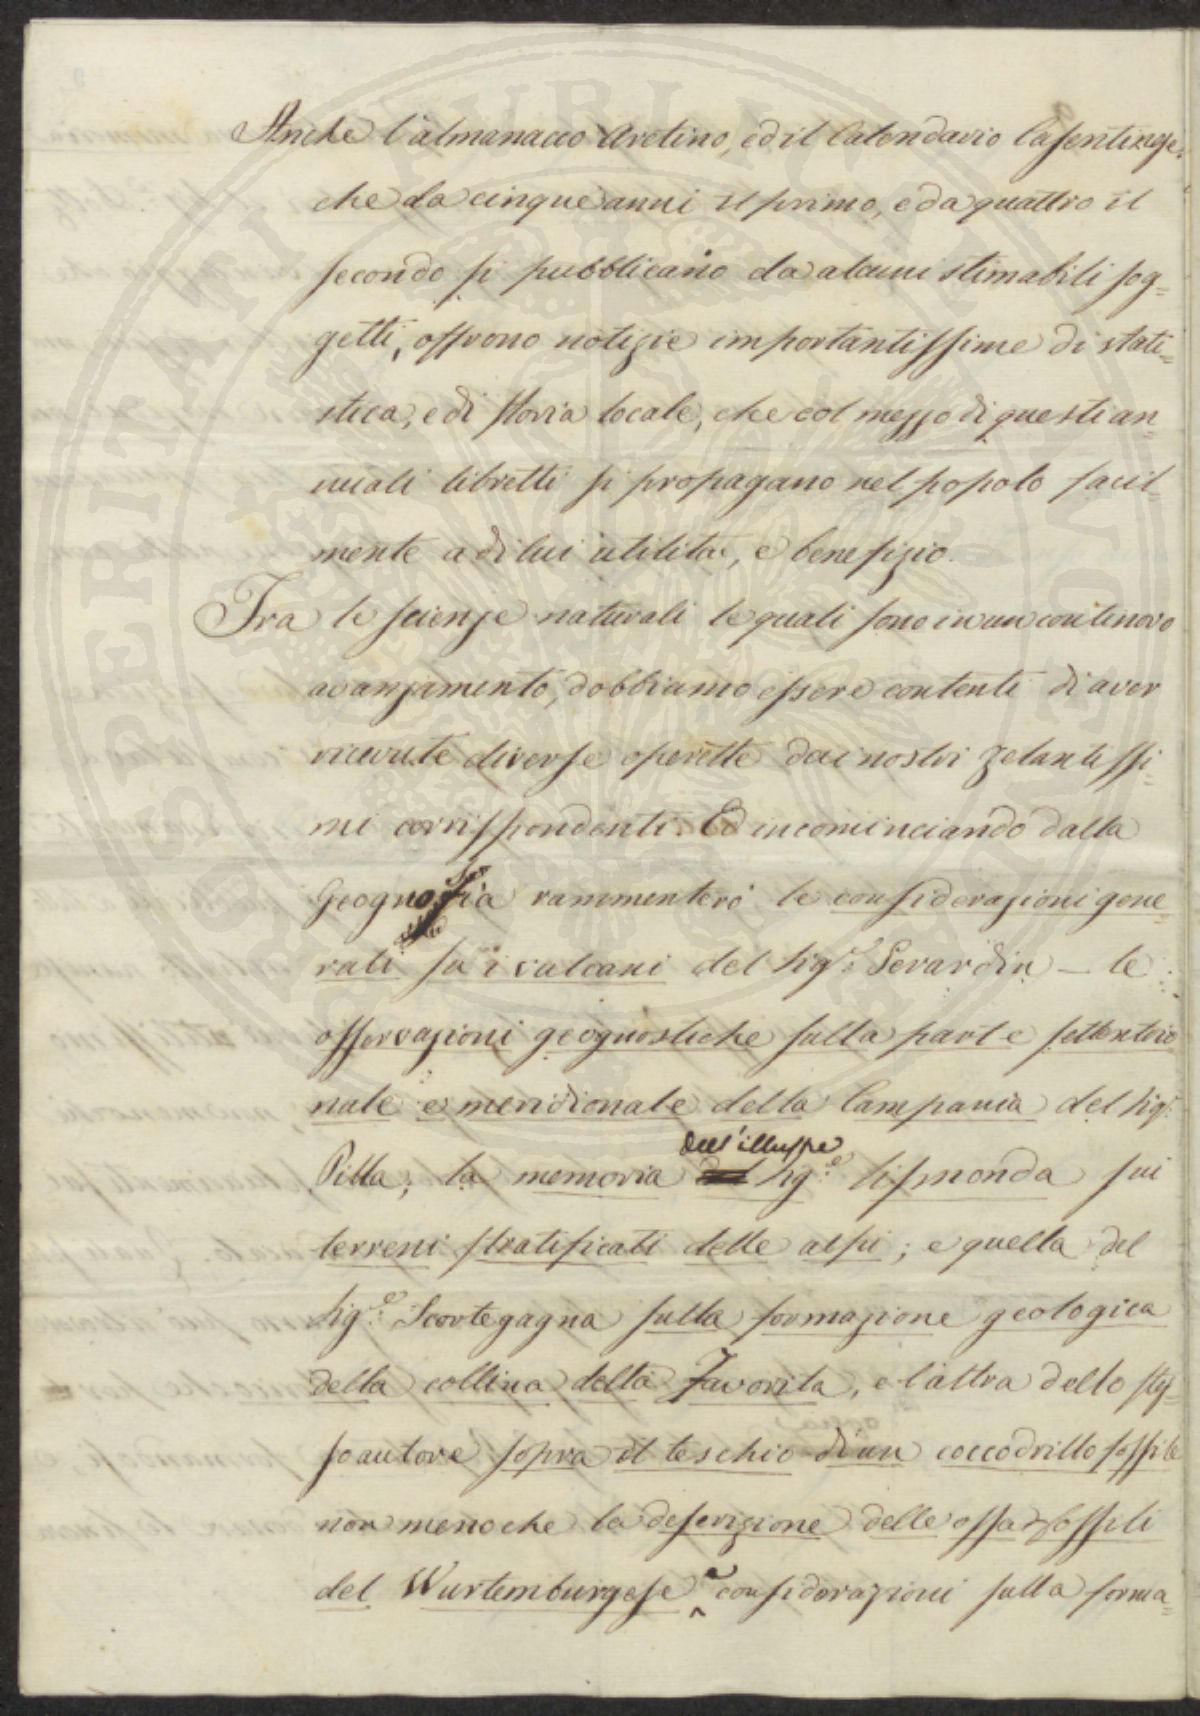 Anche l'almanacco Aretino, ed il Calendario Casentinese
che da cinque anni il primo, e da quattro il
secondo si pubblicano da alcuni stimabili sog=
getti, offrono notizie importantissime di stati=
stica, e di storia locale, che col mezzo di questi an=
nuali libretti si propagano nel popolo facil=
mente a di lui utilità, e benefizio.
Fra le scienze naturali le quali sono in un continovo
avanzamento, dobbiamo essere contenti di aver
ricevute diverse operette dai nostri zelantissi=
mi corrispondenti. Ed incominciando dalla
Geognosia rammenterò le considerazioni gene=
rali su i vulcani del Sig.e Gerardin — le
osservazioni geognostiche sulla parte settentrio
nale e meridionale della Campania del Sig.
Pilla; la memoria dell'illusſre Sig.e Sismonda sui
terreni stratificati delle alpi; e quella del
Sig.e Scortegagna sulla formazione geologica
della collina della Favorita, e l'altra dello stes=
so autore sopra il teschio di un coccodrillo fossile
non meno che la descrizione delle ossa fossili
del Wurtemburgese e considerazioni sulla forma=
PROSPERITATI PUBLICAE AUGENDAE